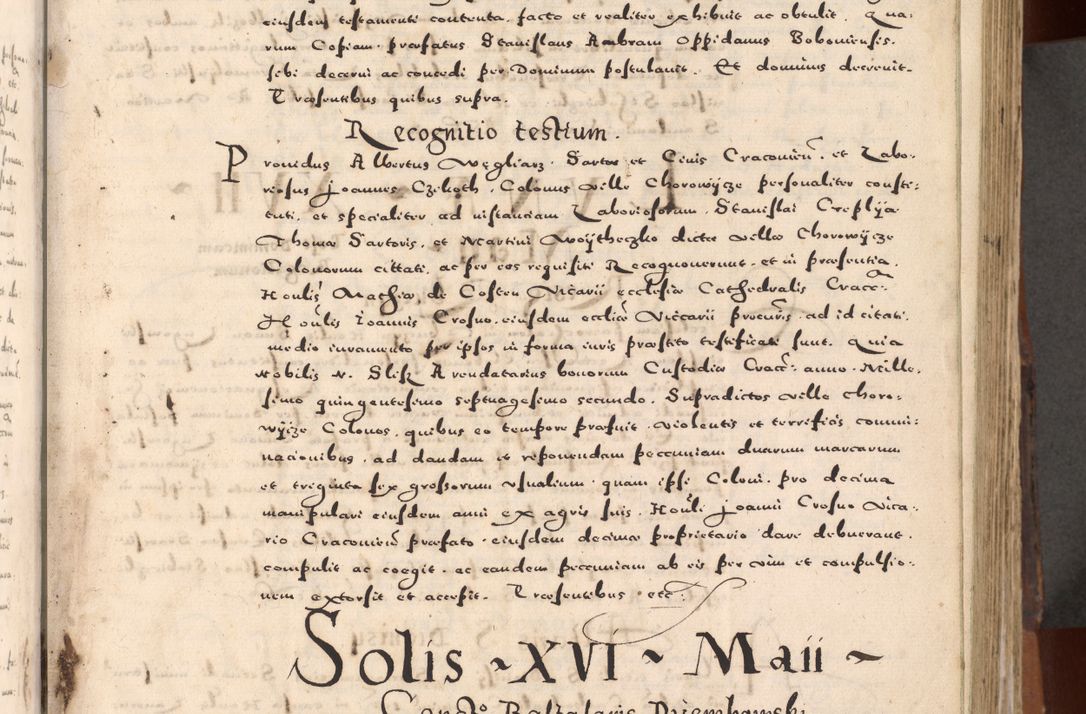 eiusdem testamenti contenta, facto et realiter exhibuit ac obtulit. Qua:
rum Copiam præfatus Stanislaus Ambram Oppidanus Boboniensis.
sibi decerni ac concedi per Dominum postulavit. Et dominus decrevit.
Præsentibus quibus supra.
Recognitio testium.
Providus Albertus Węgliarz. Sartor et Civis Cracovien. et Labo-
riosus Joannes Czekoth. Colonus villæ Chorowijcze personaliter consti-
tuti, et specialiter ad instanciam Laboriosorum. Stanislai Creplija
Thomæ Sartoris, et Martini Woijtheczko dictæ villæ Chorowijcze
Colonorum cittati, ac per eos requisiti Recognoverunt. et in præsentia.
Honlis Mathiæ de Costen Vicarii ecclesiæ Cathedralis Cracc:
Honlis Joannis Crosno. eiusdem eccliæ Viccarii procuris. ad id citati.
medio iuramento per ipsos in forma iuris præstito testificati sunt. Quia
Nobilis N. Slisz Arendatarius bonorum Custodiæ Cracc: anno. Mille.
simo quingentesimo septuagesimo secundo. Supradictos villæ Choro-
wijcze Colonos. quibus eo tempore præfuit. violentis et terrificis commi:
nacionibus. ad dandam et reponendam peccuniam duarum marcarum
et triginta sex grossorum usualium. quam ipsi Coloni. pro decima
manipulari eiusdem anni ex agris suis. Honli Joanni Crosno Vica:
rio Cracovien præfato. eiusdem decimæ proprietario dare debuerant.
compulit ac coegit. ac eandem peccuniam ab eis per vim et compulsio:
nem extorsit et accepit. Præsentibus etc.
Solis ~ XVI ~ Maii ~
Balthasaris